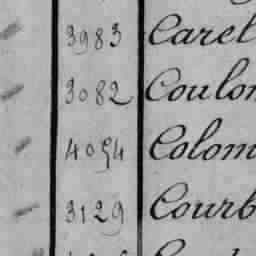 3983 Caret
3082 Coulon
4054 Colom
3129 Courb